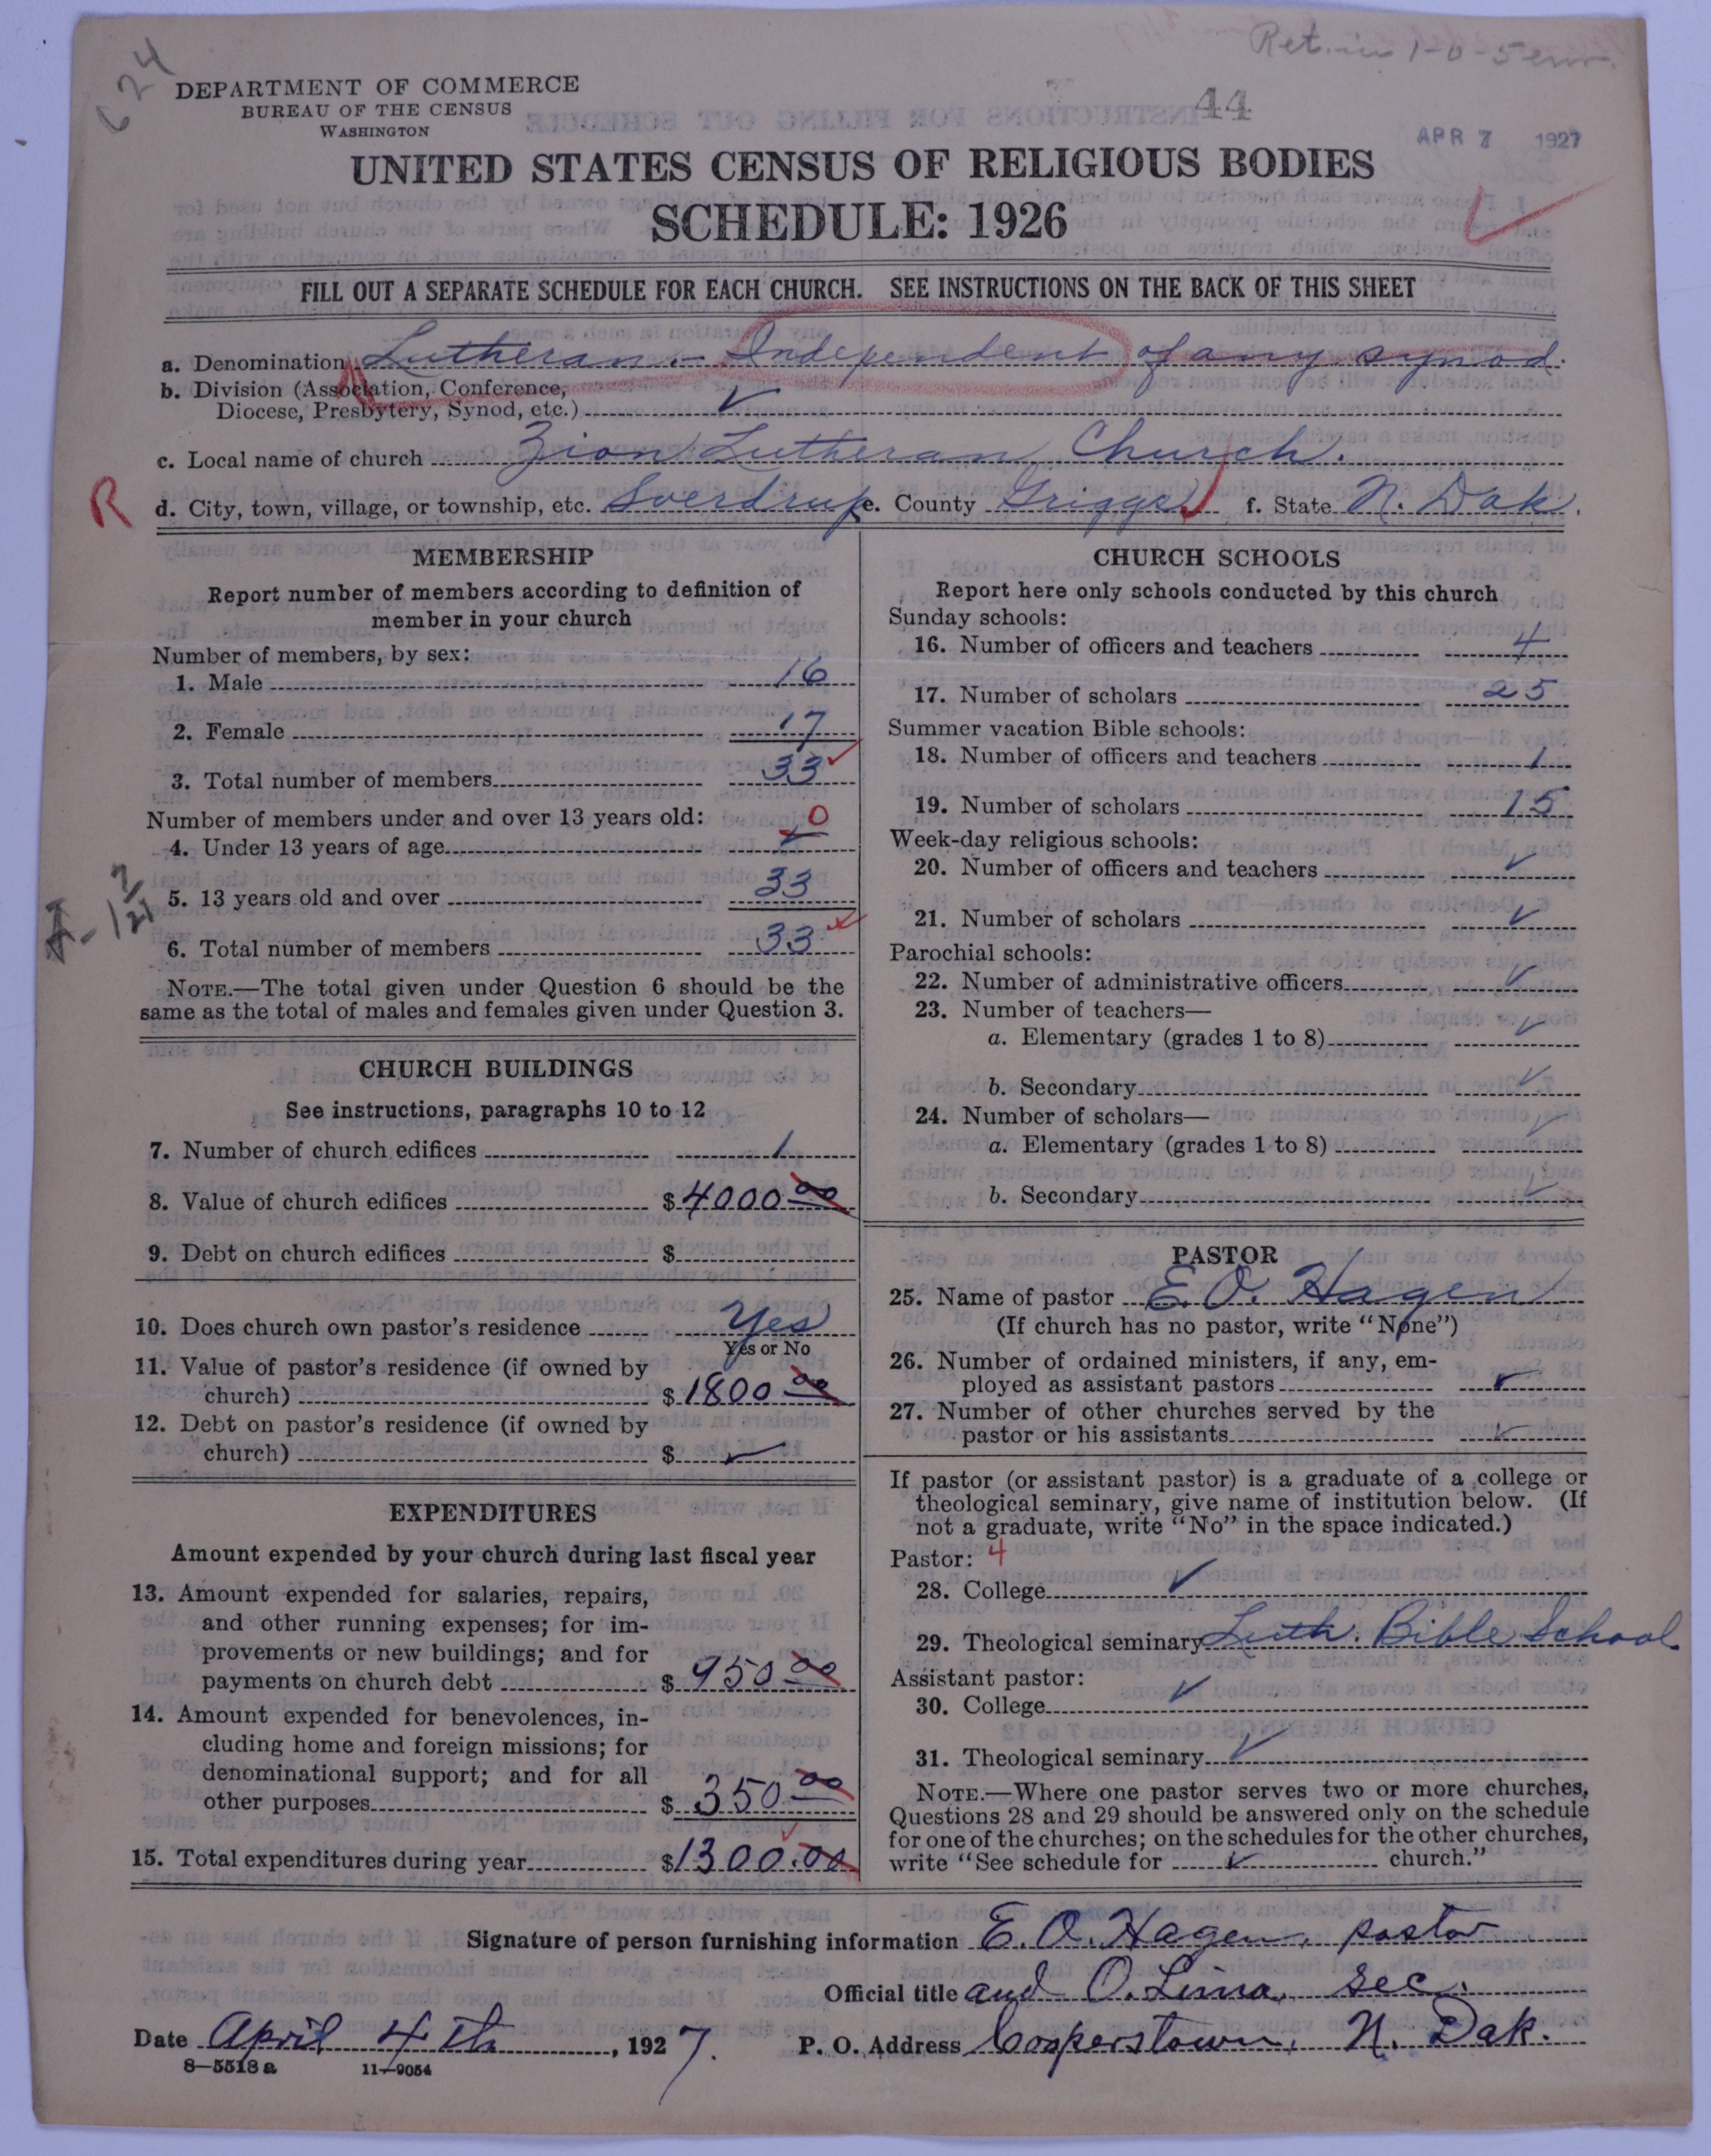 624
Ret. in 1-0-5
DEPARTMENT OF COMMERCE
BUREAU OF THE CENSUS
WASHINGTON
44
APR 7 1927
UNITED STATES CENSUS OF RELIGIOUS BODIES
SCHEDULE: 1926
FILL OUT A SEPARATE SCHEDULE FOR EACH CHURCH. SEE INSTRUCTIONS ON THE BACK OF THIS SHEET
a. Denomination Lutheran - Independent of any synod.
b. Division (Association, Conference,
Diocese, Presbytery, Synod, etc.) ✓
c. Local name of church Zion Lutheran Church.
R d. City, town, village, or township, etc. Sverdrup e. County Griggs f. State N. Dak.
MEMBERSHIP
Report number of members according to definition of
member in your church
Number of members, by sex:
1. Male 16
2. Female 17
3. Total number of members 33 ✓
Number of members under and over 13 years old:
4. Under 13 years of age ✓ 0
5. 13 years old and over 33
6. Total number of members 33 ✓
NOTE.—The total given under Question 6 should be the
same as the total of males and females given under Question 3.
CHURCH BUILDINGS
See instructions, paragraphs 10 to 12
7. Number of church edifices 1
8. Value of church edifices $4000 00
9. Debt on church edifices $
10. Does church own pastor's residence Yes
Yes or No
11. Value of pastor's residence (if owned by
church) $1800 00
12. Debt on pastor's residence (if owned by
church) $ ✓
EXPENDITURES
Amount expended by your church during last fiscal year
13. Amount expended for salaries, repairs,
and other running expenses; for im-
provements or new buildings; and for
payments on church debt $ 950 00
14. Amount expended for benevolences, in-
cluding home and foreign missions; for
denominational support; and for all
other purposes $ 350 00
15. Total expenditures during year $1300.00
CHURCH SCHOOLS
Report here only schools conducted by this church
Sunday schools:
16. Number of officers and teachers 4
17. Number of scholars 25
Summer vacation Bible schools:
18. Number of officers and teachers 1
19. Number of scholars 15
Week-day religious schools:
20. Number of officers and teachers ✓
21. Number of scholars ✓
Parochial schools:
22. Number of administrative officers ✓
23. Number of teachers—
a. Elementary (grades 1 to 8) ✓
b. Secondary ✓
24. Number of scholars—
a. Elementary (grades 1 to 8) ✓
b. Secondary ✓
PASTOR
25. Name of pastor E. O. Hagen
(If church has no pastor, write "None")
26. Number of ordained ministers, if any, em-
ployed as assistant pastors ✓
27. Number of other churches served by the
pastor or his assistants ✓
If pastor (or assistant pastor) is a graduate of a college or
theological seminary, give name of institution below. (If
not a graduate, write "No" in the space indicated.)
Pastor: 4
28. College ✓
29. Theological seminary Luth. Bible School
Assistant pastor:
30. College ✓
31. Theological seminary ✓
NOTE.—Where one pastor serves two or more churches,
Questions 28 and 29 should be answered only on the schedule
for one of the churches; on the schedules for the other churches,
write "See schedule for ✓ church."
Signature of person furnishing information E. O. Hagen, pastor
Official title and O. Lima, sec.
Date April 4th, 1927. P. O. Address Cooperstown, N. Dak.
8—5518 a 11—9054